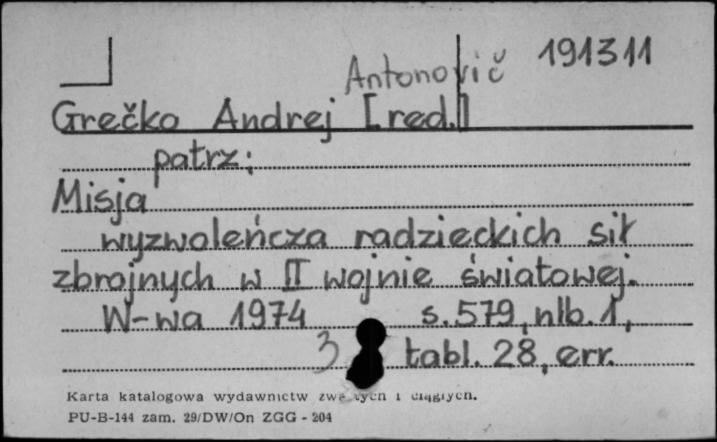 Antonovič 191311
Grečko Andrej [red.]
patrz:
Misja
wyzwoleńcza radzieckich sił
zbrojnych w II wojnie światowej.
W-wa 1974 s. 579, nlb. 1,
3 tabl. 28, err.
Karta katalogowa wydawnictw i ciągłych.
PU-B-144 zam. 29/DW/On ZGG - 204